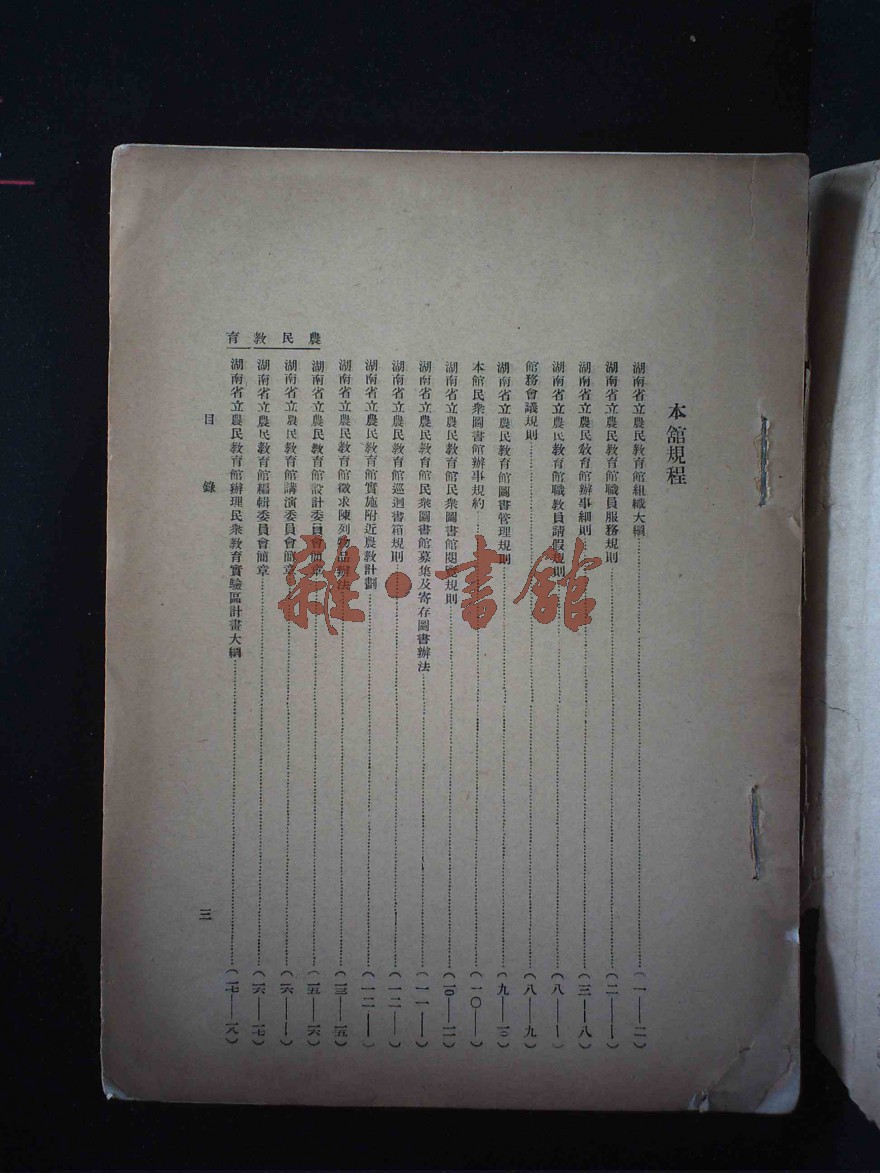 本舘規程
湖南省立農民教育館組織大綱………(一——二)
湖南省立農民教育館職員服務規則………(二——)
湖南省立農民教育館辦事細則………(三——八)
湖南省立農民教育館職教員請假規則………(八——)
館務會議規則………(八——九)
湖南省立農民教育館圖書管理規則………(九——一〇)
本館民衆圖書館辦事規約………(一〇——)
湖南省立農民教育館民衆圖書館閱覽規則………(一〇——一一)
湖南省立農民教育館民衆圖書館募集及寄存圖書辦法………(一一——)
湖南省立農民教育館巡迴書箱規則………(一二——)
湖南省立農民教育館實施附近農教計劃………(一二——)
湖南省立農民教育館徵求陳列物品辦法………(一三——一五)
湖南省立農民教育館設計委員會簡章………(一五——一六)
湖南省立農民教育館講演委員會簡章………(一六——)
湖南省立農民教育館編輯委員會簡章………(一六——一七)
湖南省立農民教育館辦理民衆教育實驗區計畫大綱………(一七——一八)
農民教育
目錄
三
雜·書館